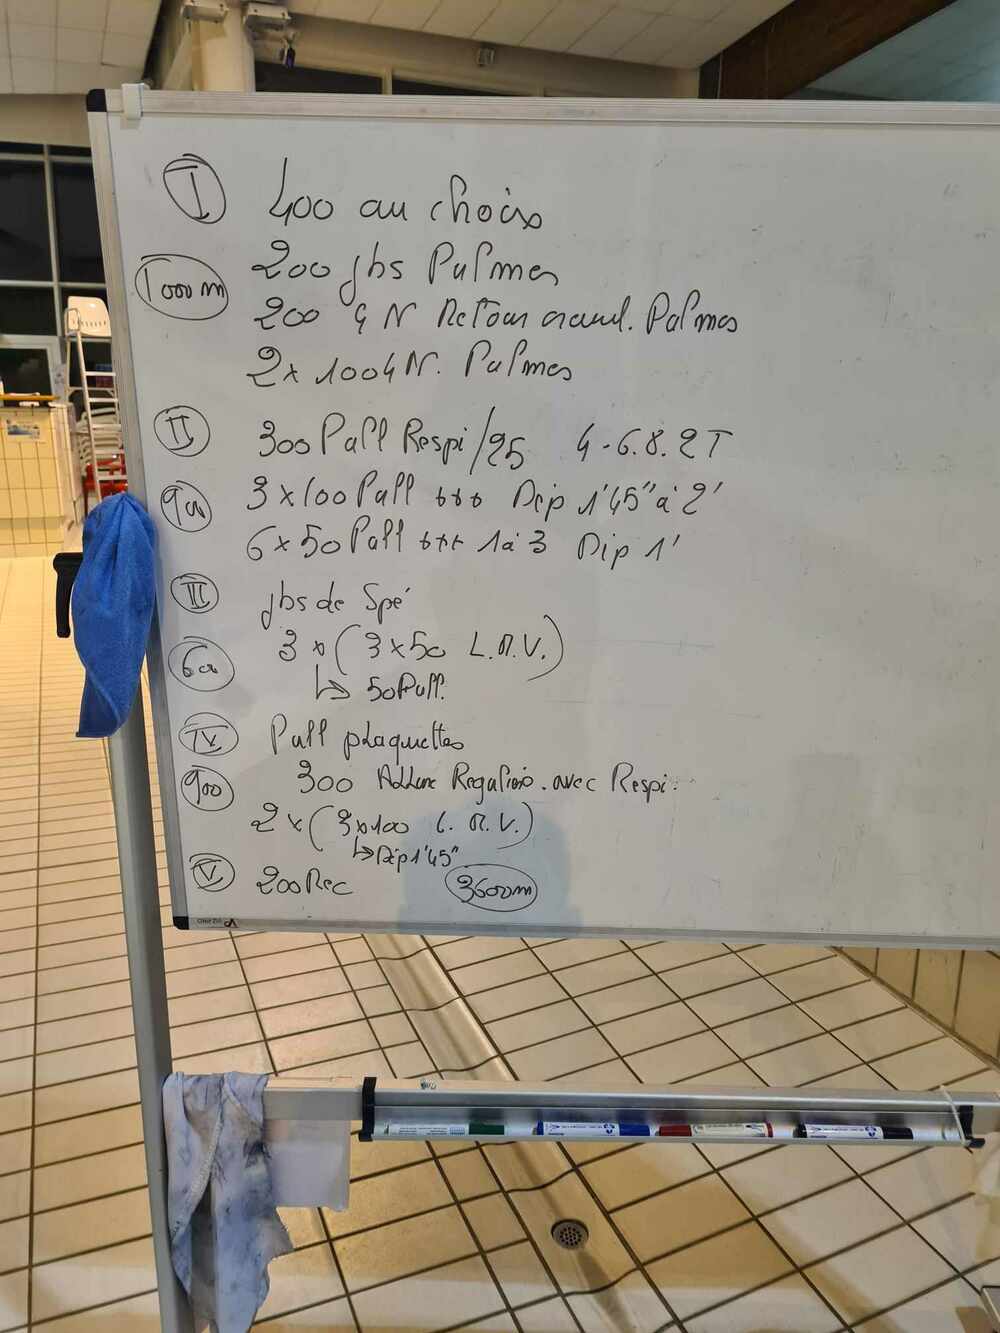 I 400 au choix
1000m 200 jbs Palmes
200 4N Retour crawl. Palmes
2x 100 4N. Palmes
II 300 Pull Respi/25 4-6.8.2T
900 3x100 Pull +++ Dép 1'45" à 2'
6x50 Pull +++ 1à3 Dép 1'
III jbs de Spé
600 3x(3x50 L.M.V.)
↳ 50 Pull.
IV Pull plaquettes
900 300 Allure Régulière. avec Respi.
2x(3x100 L.M.V.)
↳ Dép 1'45"
V 200 Rec 3600m